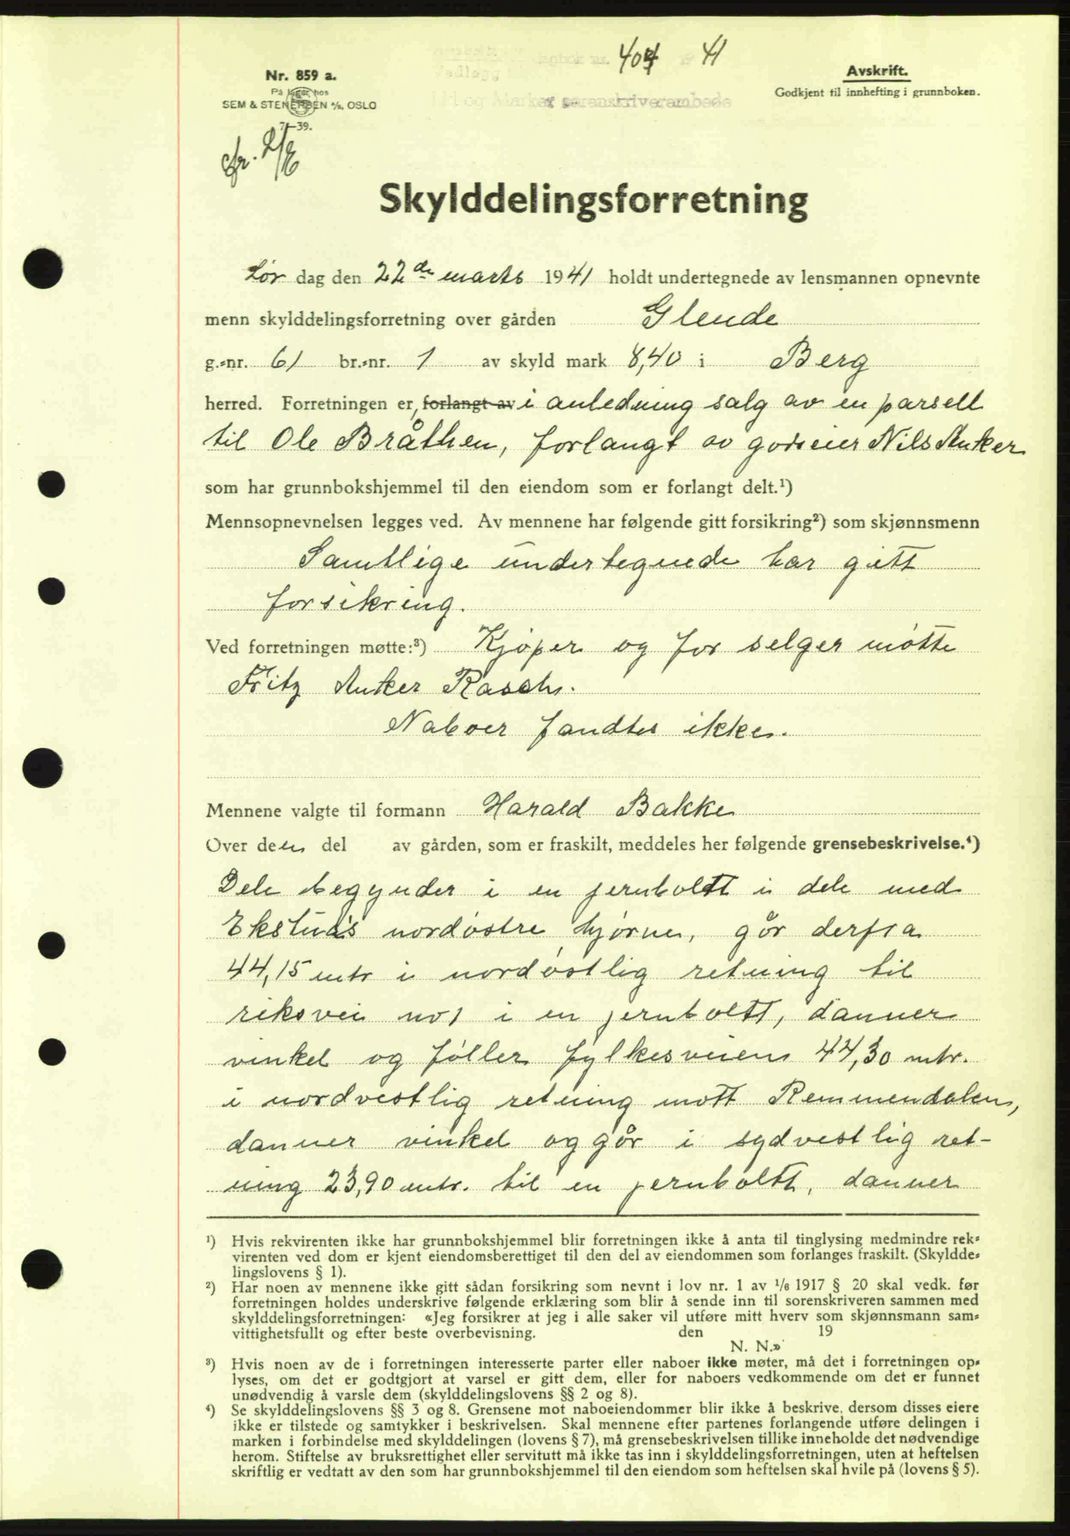 404 41
Nr. 859 a.
På lager hos
SEM & STENERSEN A/S, OSLO
7—39.
Avskrift.
Godkjent til innhefting i grunnboken.
Skylddelingsforretning
Lør dag den 22 de marts 1941 holdt undertegnede av lensmannen opnevnte
menn skylddelingsforretning over gården Glende
g.-nr. 61 br.-nr. 1 av skyld mark 8,40 i Berg
herred. Forretningen er, forlangt av i anledning salg av en parsell
til Ole Bråthen, forlangt av godseier Nils Anker
som har grunnbokshjemmel til den eiendom som er forlangt delt.¹)
Mennsopnevnelsen legges ved. Av mennene har følgende gitt forsikring²) som skjønnsmenn
Samtlige undertegnede har gitt
forsikring.
Ved forretningen møtte:³) Kjøper og for selger møtte
Fritz Anker Rasch.
Naboer fandtes ikke.
Mennene valgte til formann Harald Bakke
Over den del av gården, som er fraskilt, meddeles her følgende grensebeskrivelse.⁴)
Dele begynder i en jernboltt i dele med
Ekstuas nordøstre hjørne, går derfra
44,15 mtr i nordøstlig retning til
riksvei no 1 i en jernboltt, danner
vinkel og føller fylkesveien 44,30 mtr.
i nordvestlig retning mott Remmendalen,
danner vinkel og går i sydvestlig ret-
ning 23,90 mtr. til en jernboltt, danner
¹) Hvis rekvirenten ikke har grunnbokshjemmel blir forretningen ikke å anta til tinglysing medmindre rek-
virenten ved dom er kjent eiendomsberettiget til den del av eiendommen som forlanges fraskilt. (Skyldde-
lingslovens § 1).
²) Har noen av mennene ikke gitt sådan forsikring som nevnt i lov nr. 1 av 1/6 1917 § 20 skal vedk. før
forretningen holdes underskrive følgende erklæring som blir å sende inn til sorenskriveren sammen med
skylddelingsforretningen: «Jeg forsikrer at jeg i alle saker vil utføre mitt hverv som skjønnsmann sam-
vittighetsfullt og efter beste overbevisning. den 19
N. N.»
³) Hvis noen av de i forretningen interesserte parter eller naboer ikke møter, må det i forretningen op-
lyses, om det er godtgjort at varsel er gitt dem, eller for naboers vedkommende om det er funnet
unødvendig å varsle dem (skylddelingslovens §§ 2 og 8).
⁴) Se skylddelingslovens §§ 3 og 8. Grensene mot naboeiendommer blir ikke å beskrive, dersom disses eiere
ikke er tilstede og samtykker i beskrivelsen. Skal mennene efter partenes forlangende utføre delingen i
marken i forbindelse med skylddelingen (lovens § 7), må grensebeskrivelsen tillike inneholde det nødvendige
herom. Stiftelse av bruksrettighet eller servitutt må ikke tas inn i skylddelingsforretningen, uten at heftelsen
skriftlig er vedtatt av den som har grunnbokshjemmel til den eiendom som heftelsen skal hvile på (lovens § 5).